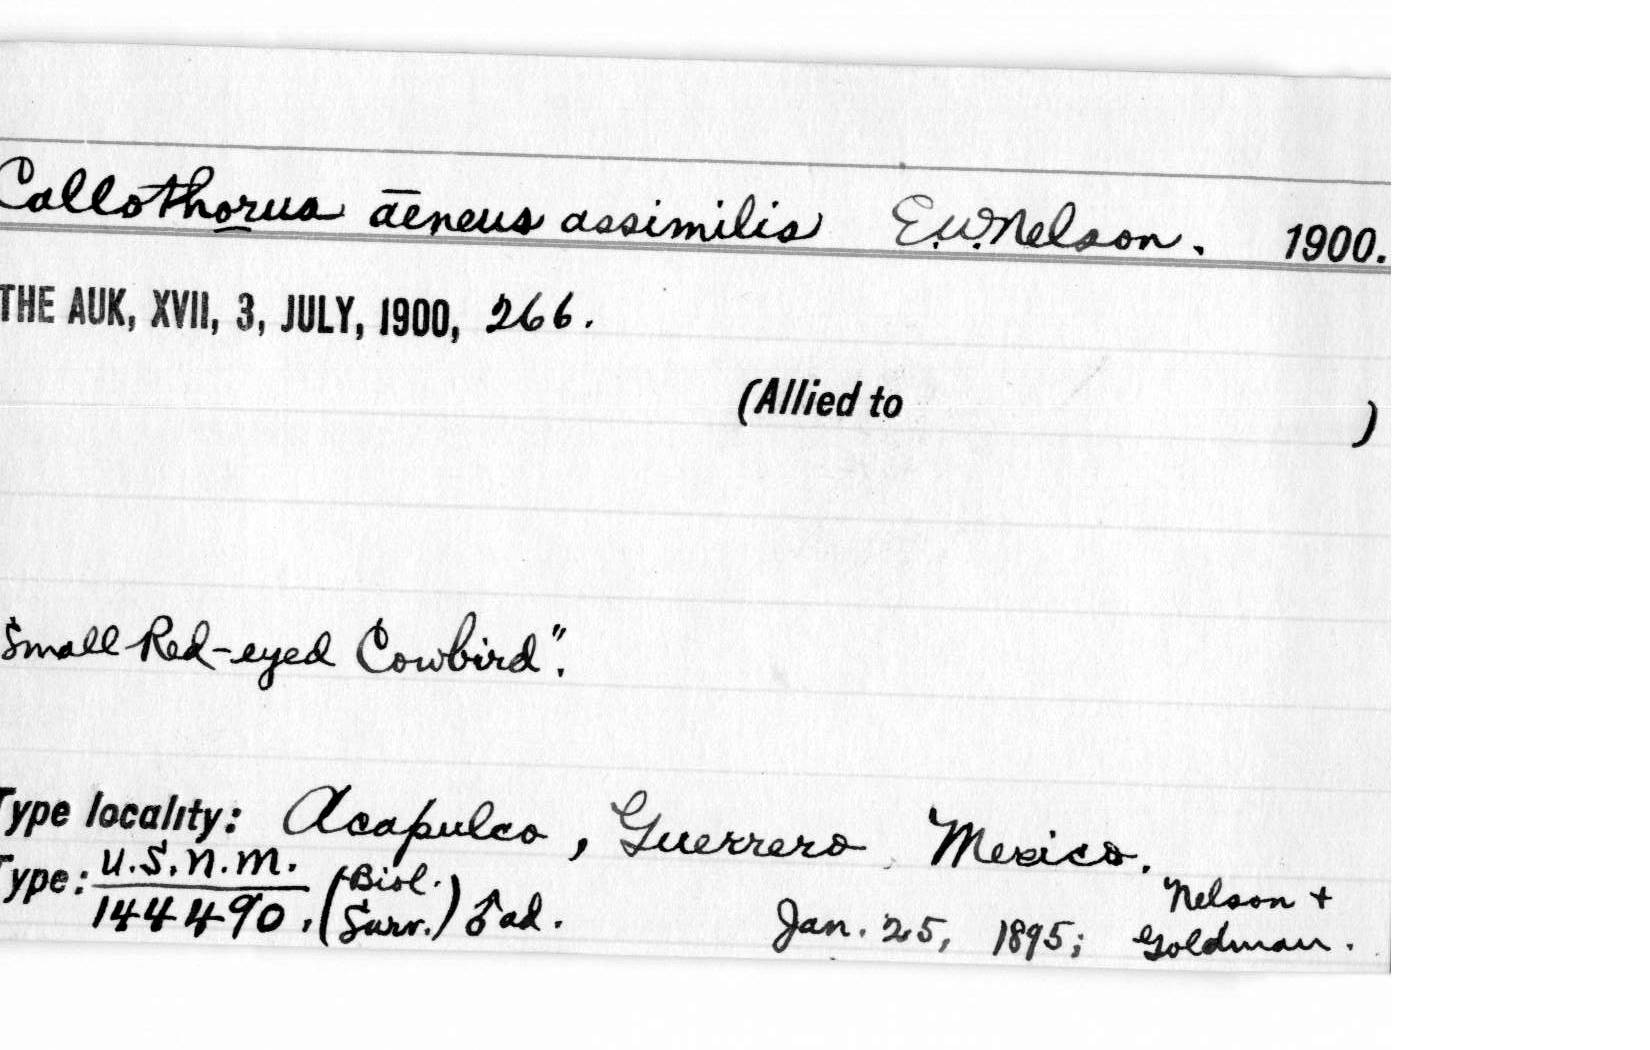 Callothorus āeneus assimilis E.W. Nelson. 1900.
THE AUK, XVII, 3, JULY, 1900, 266.
(Allied to )
Small Red-eyed Cowbird".
Type locality: Acapulco, Guerrero, Mexico.
Type: U.S.N.M. 144490, (Biol. Surv.) ♂ ad. Jan. 25, 1895; Nelson + Goldman.